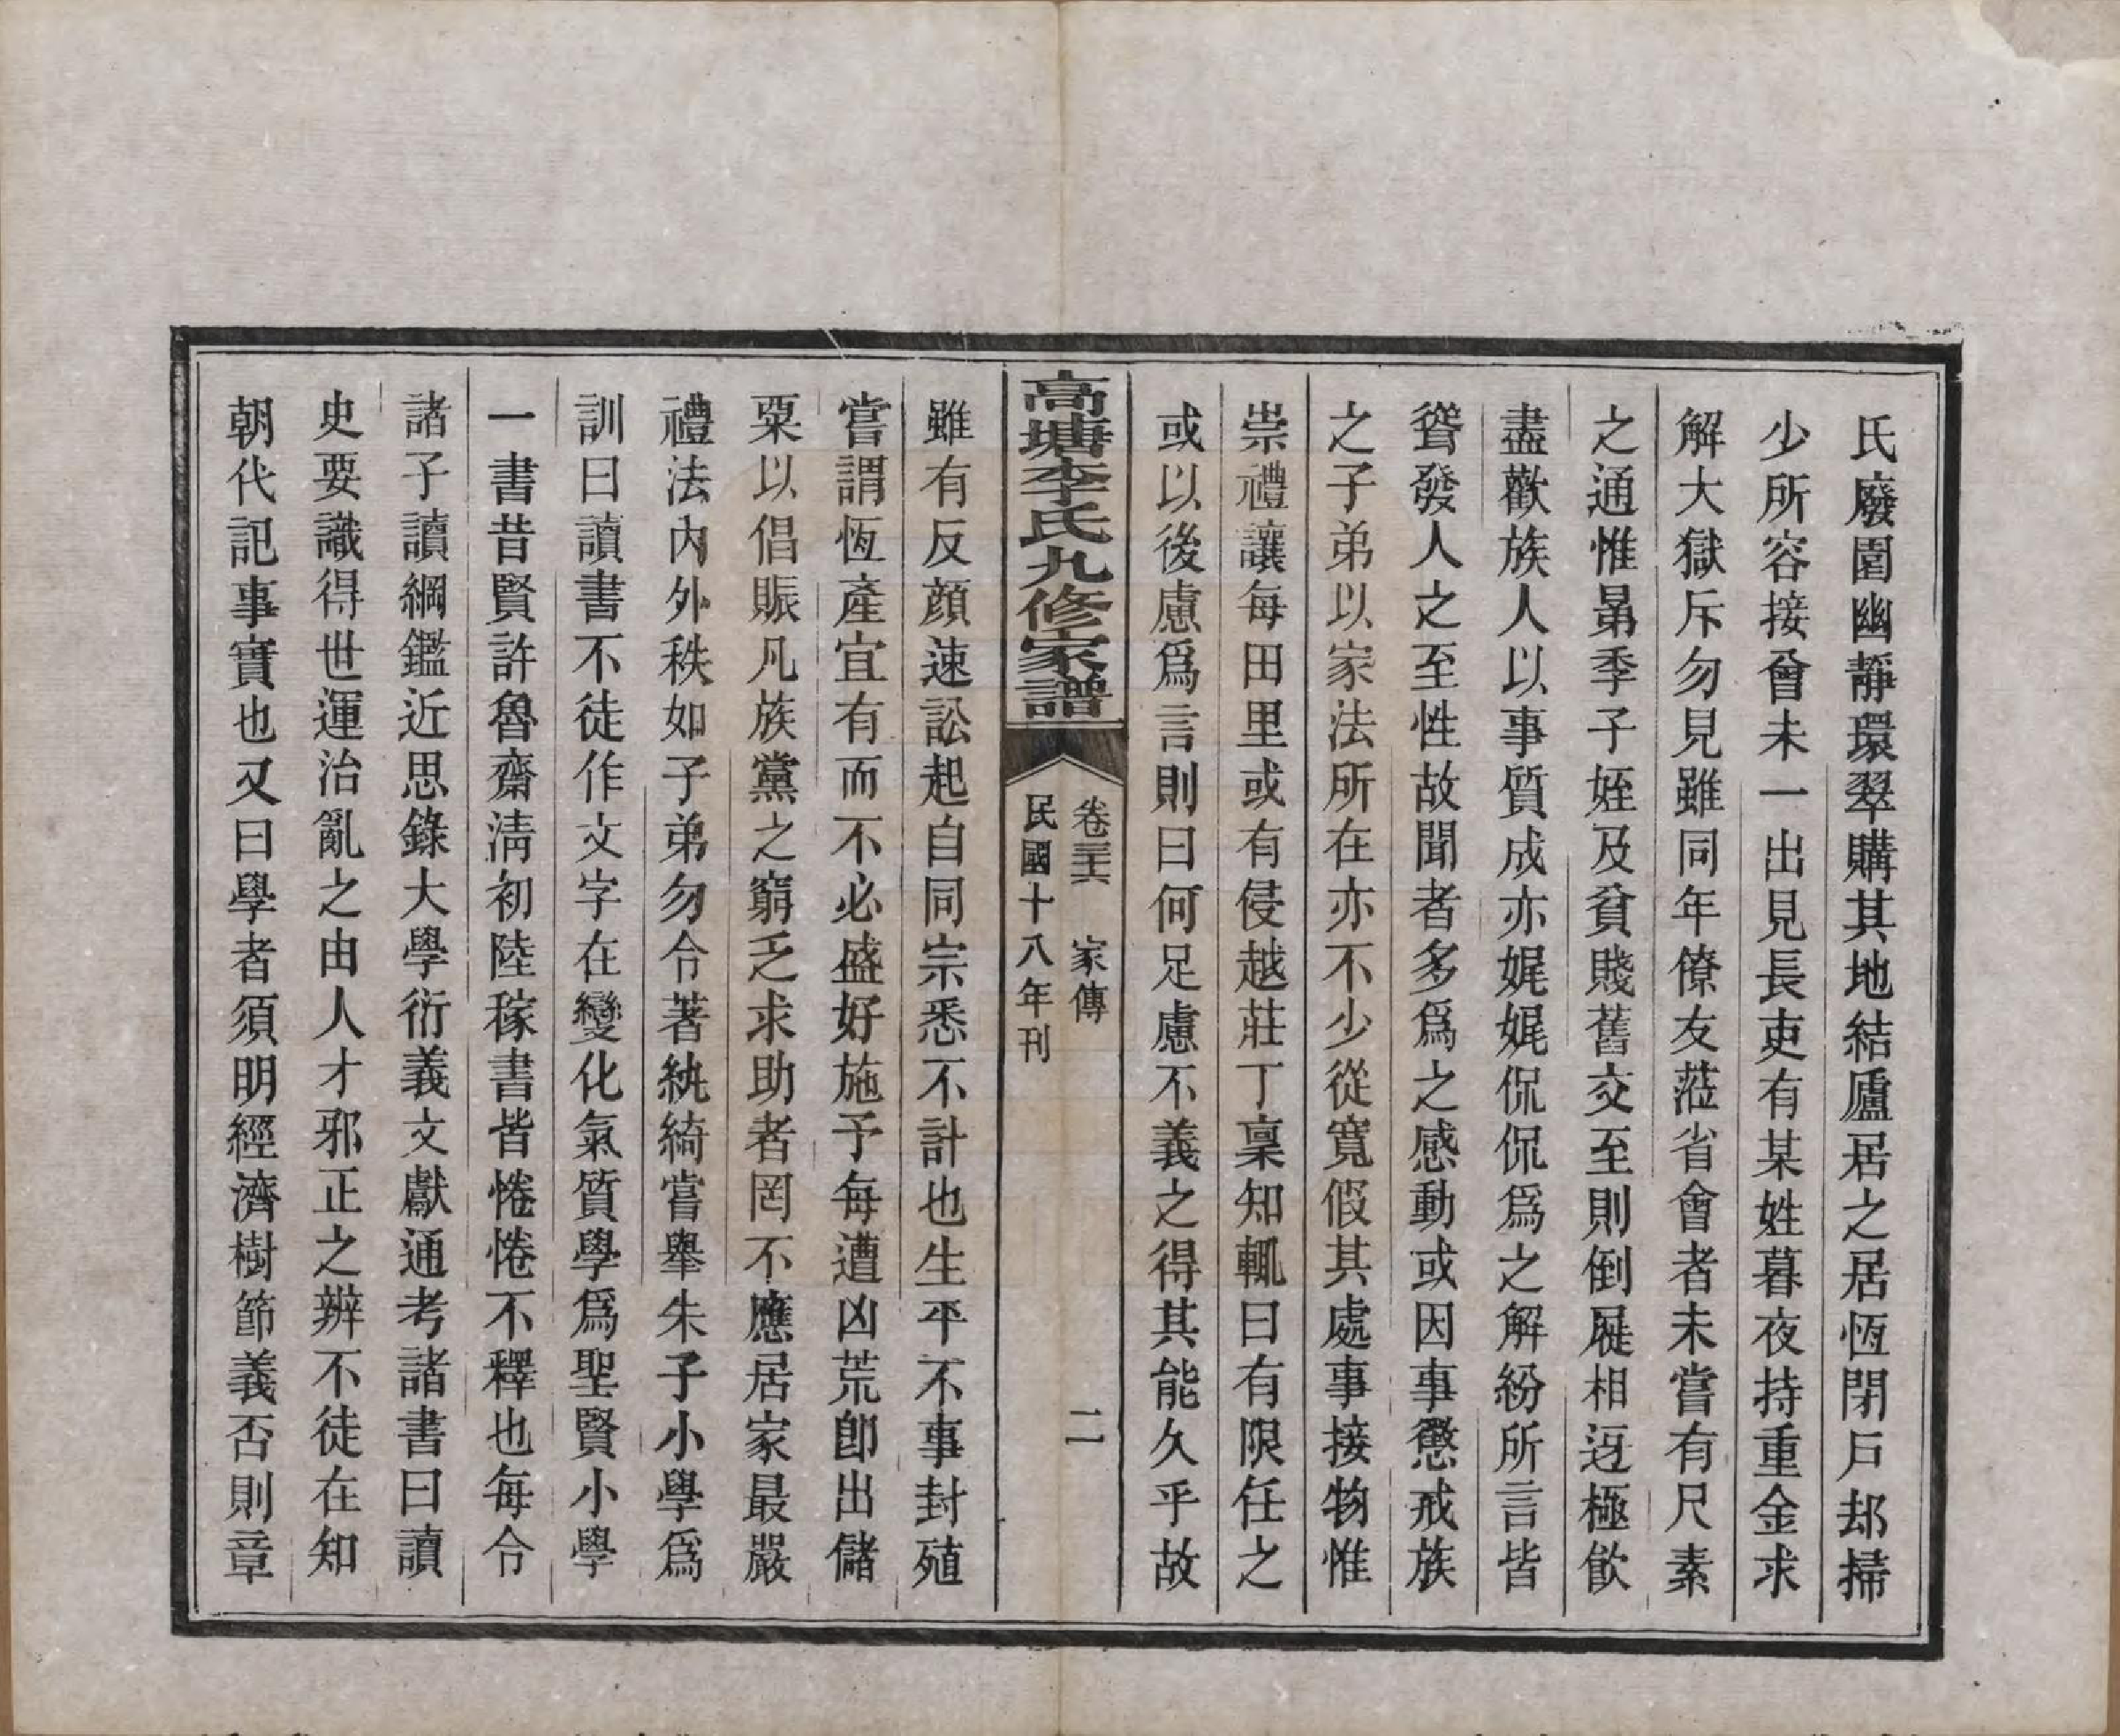 氏廢園幽靜環翠購其地結廬居之居恆閉戸却掃
少所容接曾未一出見長吏有某姓暮夜持重金求
解大獄斥勿見雖同年僚友蒞省會者未嘗有尺素
之通惟昆季子姪及貧賤舊交至則倒屣相迓極飲
盡歡族人以事質成亦娓娓侃侃爲之解紛所言皆
聳發人之至性故聞者多爲之感動或因事懲戒族
之子弟以家法所在亦不少從寬假其處事接物惟
崇禮讓每田里或有侵越莊丁稟知輒曰有限任之
或以後慮爲言則曰何足慮不義之得其能久乎故
高塘李氏九修家譜
卷三六 家傳
二
民國十八年刊
雖有反顔速訟起自同宗悉不計也生平不事封殖
嘗謂恆產宜有而不必盛好施予每遭凶荒卽出儲
粟以倡賑凡族黨之窮乏求助者罔不應居家最嚴
禮法内外秩如子弟勿令著紈綺嘗舉朱子小學爲
訓曰讀書不徒作文字在變化氣質學爲聖賢小學
一書昔賢許魯齋淸初陸稼書皆惓惓不釋也每令
諸子讀綱鑑近思錄大學衍義文獻通考諸書曰讀
史要識得世運治亂之由人才邪正之辨不徒在知
朝代記事實也又曰學者須明經濟樹節義否則章